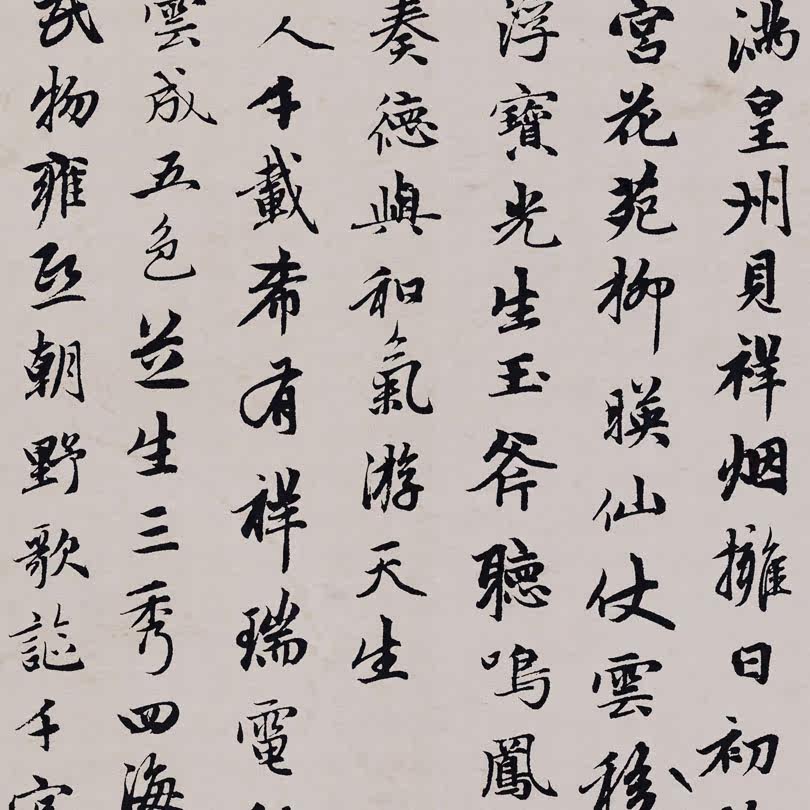 滿皇州見祥烟擁日初
宮花苑柳暎仙仗雲移
浮寶光生玉斧聽鳴鳳
奏德與和氣游天生
人千載希有祥瑞電
雲成五色芝生三秀四海
民物雍熙朝野歌謳千官